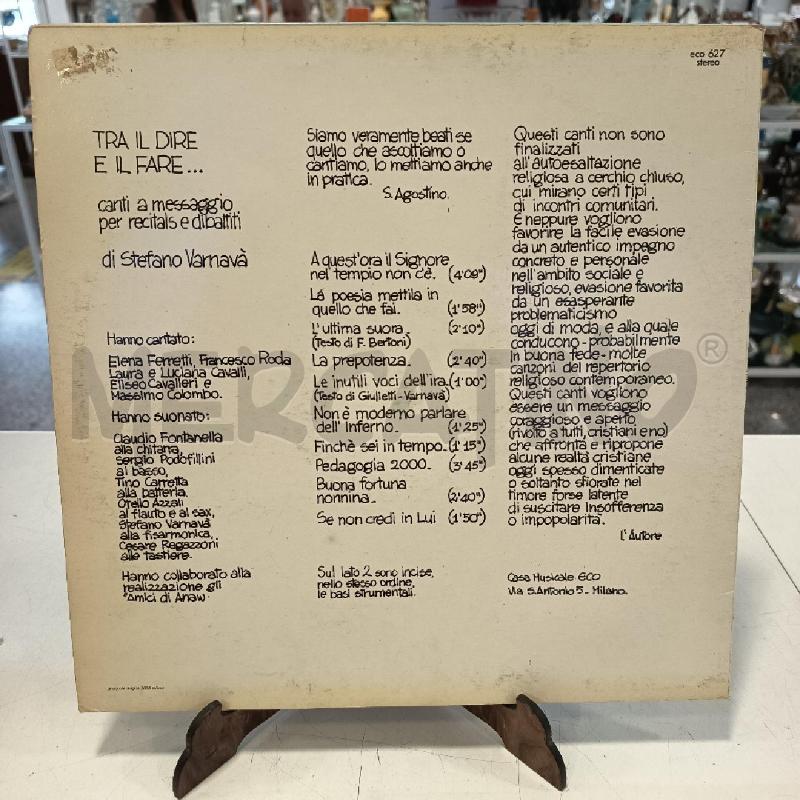 eco 627
stereo
TRA IL DIRE
E IL FARE...
canti a messaggio
per recitals e dibattiti
di Stefano Varnavà
Hanno cantato:
Elena Ferretti, Francesco Roda
Laura e Luciana Cavalli,
Eliseo Cavalleri e
Massimo Colombo.
Hanno suonato:
Claudio Fontanella
alla chitarra,
Sergio Podofillini
al basso,
Tino Carretta
alla batteria,
Otello Azzali
al flauto e al sax,
Stefano Varnavà
alla fisarmonica,
Cesare Regazzoni
alle tastiere.
Hanno collaborato alla
realizzazione gli
"Amici di Anaw"
Siamo veramente beati se
quello che ascoltiamo o
cantiamo, lo mettiamo anche
in pratica.
S. Agostino.
A quest'ora il Signore
nel tempio non c'è. (4'09")
La poesia mettila in
quello che fai. (1'58")
L'ultima suora. (2'10")
(Testo di F. Bertoni)
La prepotenza. (2'40")
Le inutili voci dell'ira. (1'00")
(Testo di Giulietti-Varnavà)
Non è moderno parlare
dell'Inferno. (1'25")
Finchè sei in tempo. (1'15")
Pedagogia 2000. (3'45")
Buona fortuna
nonnina. (2'40")
Se non credi in Lui (1'50")
Sul lato 2 sono incise,
nello stesso ordine,
le basi strumentali.
Questi canti non sono
finalizzati
all'autoesaltazione
religiosa a cerchio chiuso,
cui mirano certi tipi
di incontri comunitari.
E neppure vogliono
favorire la facile evasione
da un autentico impegno
concreto e personale
nell'ambito sociale e
religioso, evasione favorita
da un esasperante
problematicismo
oggi di moda, e alla quale
conducono - probabilmente
in buona fede - molte
canzoni del repertorio
religioso contemporaneo.
Questi canti vogliono
essere un messaggio
coraggioso e aperto
(rivolto a tutti, cristiani e no)
che affronta e ripropone
alcune realtà cristiane
oggi spesso dimenticate
o soltanto sfiorate nel
timore forse latente
di suscitare insofferenza
o impopolarità.
L'Autore
Casa Musicale ECO
Via S. Antonio 5 - Milano.
MERCATINO®